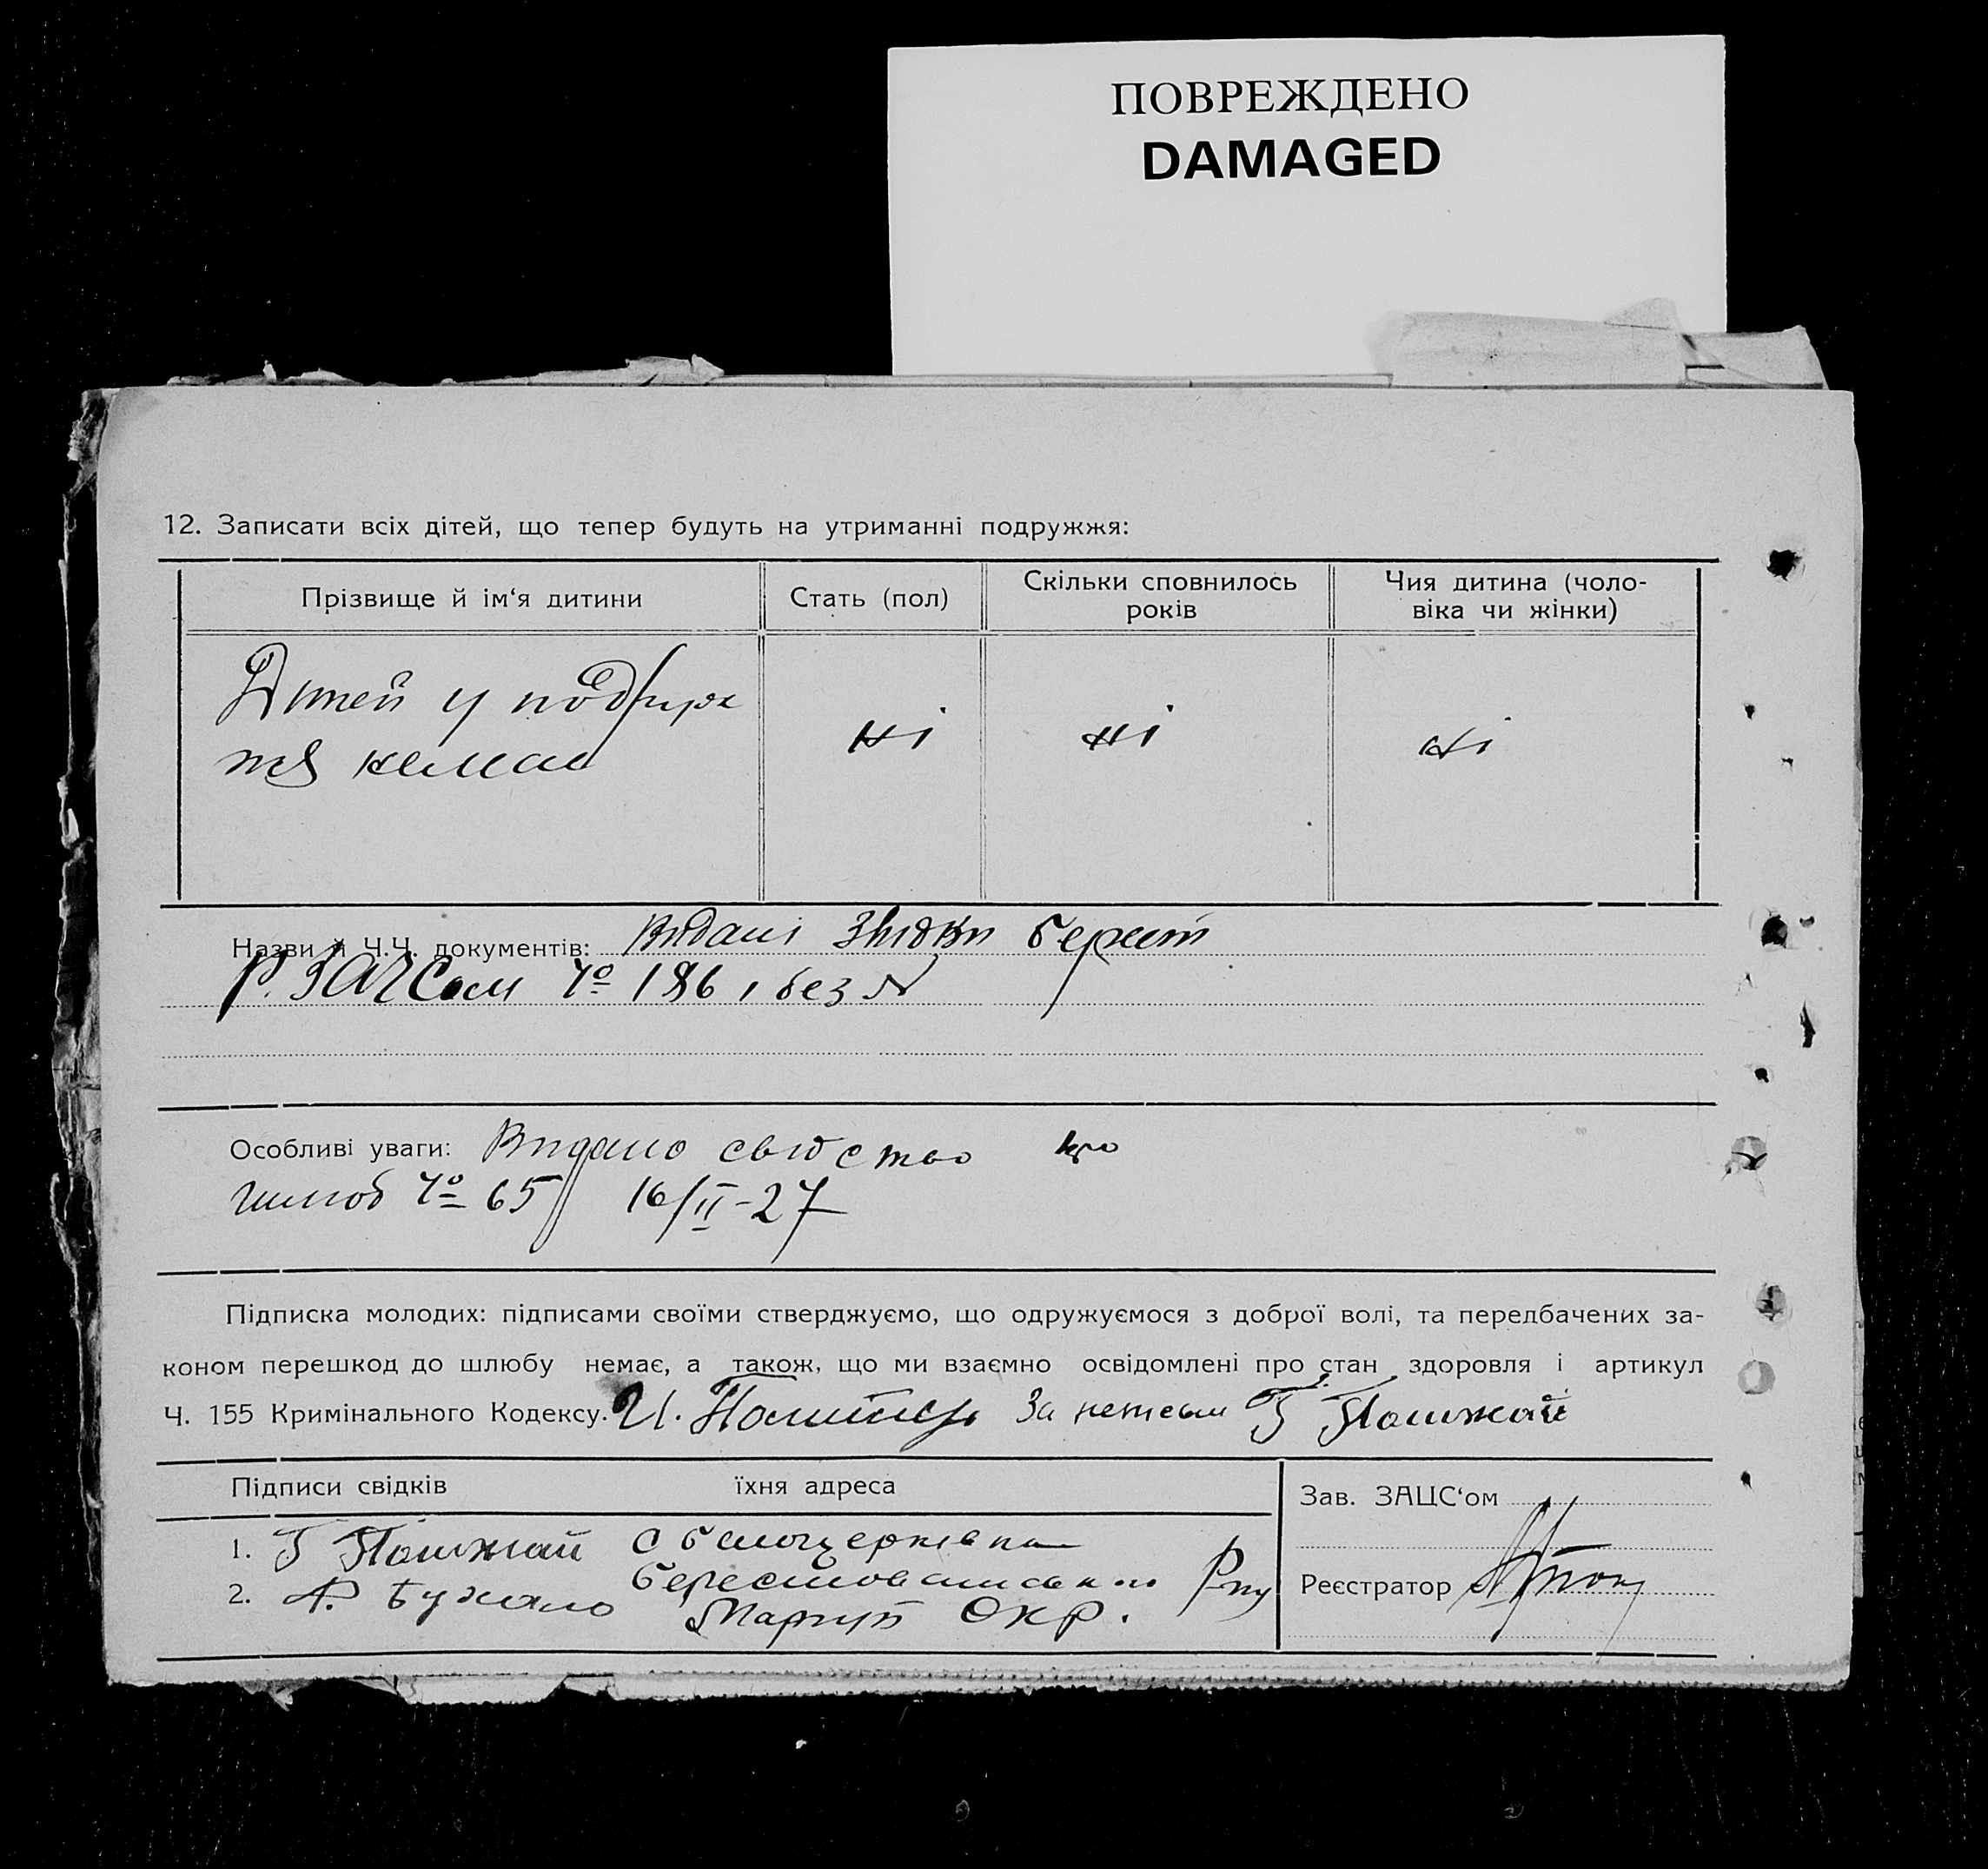 ПОВРЕЖДЕНО
DAMAGED
12. Записати всіх дітей, що тепер будуть на утриманні подружжя:
Прізвище й ім‘я дитини
Стать (пол)
Скільки сповнилось років
Чия дитина (чоло-
віка чи жінки)
Дітей у подруж
жя немає
ні
ні
ні
Назви й Ч.Ч. документів: Видані Звідки Берест
Р. ЗАЧСом Чо 186, без N
Особливі уваги: Видано свідство про
шлюб Чо 65 16/II-27
Підписка молодих: підписами своїми стверджуємо, що одружуємося з доброї волі, та передбачених за-
коном перешкод до шлюбу немає, а також, що ми взаємно освідомлені про стан здоровля і артикул
Ч. 155 Кримінального Кодексу. И. За Г Пошжай
Підписи свідків їхня адреса
Зав. ЗАЦС‘ом
1. Г Пошжай С Белоцерківка
2. А. Бужало Берестов Р-ну
Маріуп Окр.
Реєстратор